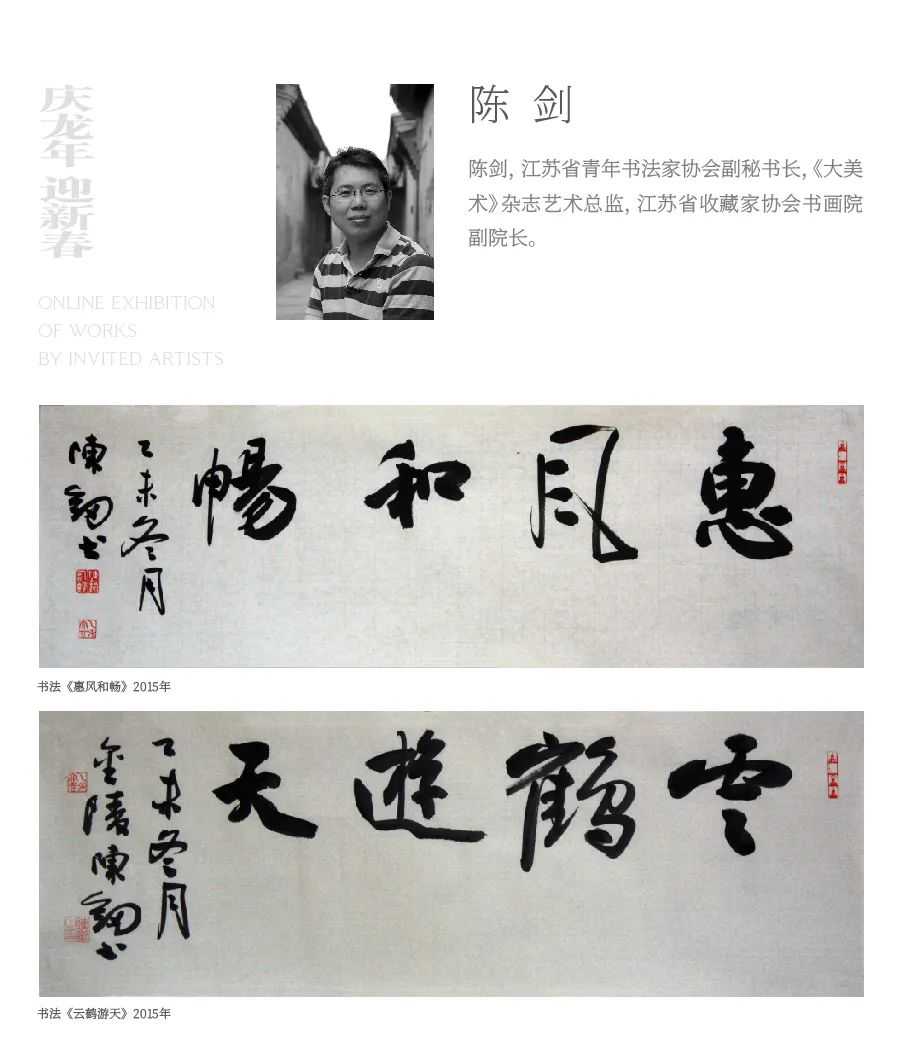 庆龙年 迎新春
ONLINE EXHIBITION
OF WORKS
BY INVITED ARTISTS
陈 剑
陈剑, 江苏省青年书法家协会副秘书长,《大美
术》杂志艺术总监, 江苏省收藏家协会书画院
副院长。
惠風和暢
乙未冬月
陳劔书
书法《惠风和畅》2015年
雲鶴遊天
乙未冬月
金陵陳劔书
书法《云鹤游天》2015年